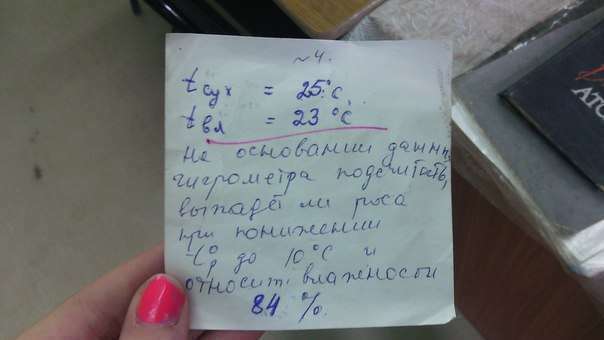 ~ 4.
tсух = 25°C,
tвл = 23 °C
На основании данн.
гигрометра подсчитать,
выпадет ли роса
при понижении
t° до 10°C и
относит. влажности
84 %.
АТО